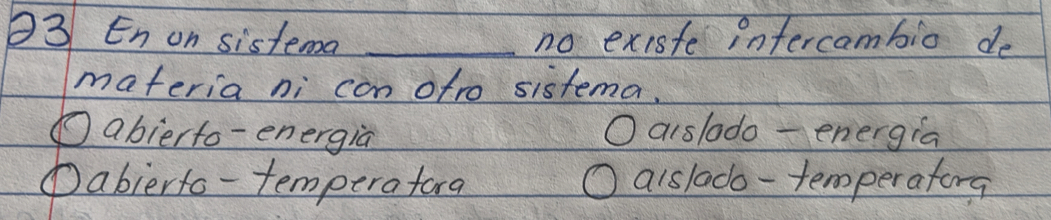 23 En un sistema ________ no existe intercambio de
materia ni con otro sistema.
O abierto - energía O aislado - energía
O abierto - temperatura O aislado - temperatura